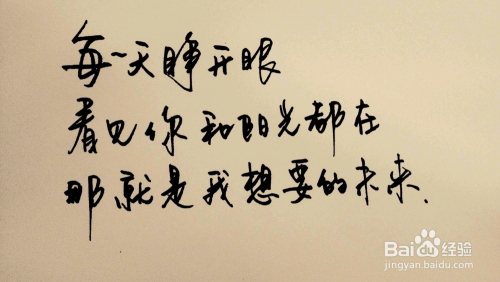 每一天睁开眼
看见你和阳光都在
那就是我想要的未来.
Baidu经验
jingyan.baidu.com